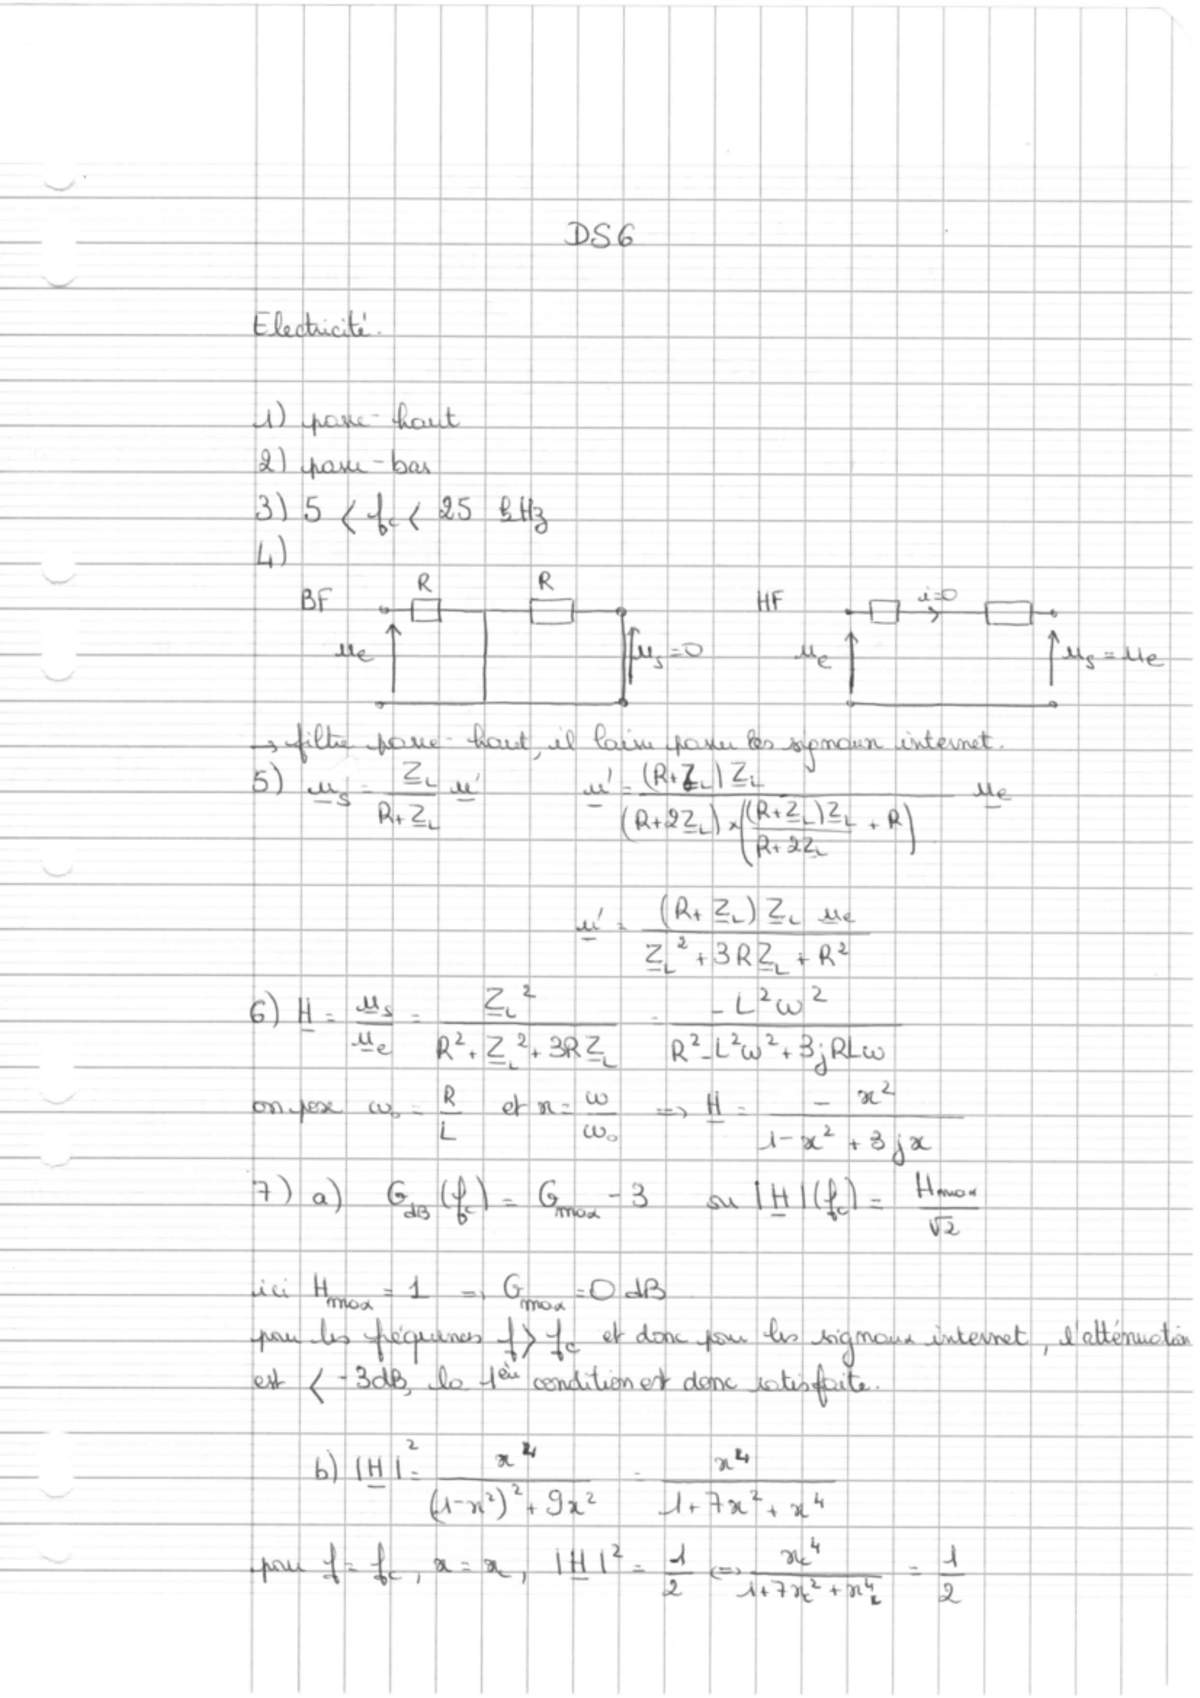 DS6
Electricité.
1) passe-haut
2) passe-bas
3) 5 < f_c < 25 kHz
4)
BF R R u_e u_s = 0 HF i=0 u_e u_s = u_e
→ filtre passe-haut, il laisse passer les signaux internet.
5) u_s = Z_L / (R + Z_L) u' u' = (R+Z_L) Z_L / ((R+2Z_L) × ((R+Z_L)Z_L / (R+2Z_L) + R)) u_e
u' = (R+Z_L) Z_L u_e / (Z_L² + 3RZ_L + R²)
6) H = u_s / u_e = Z_L² / (R² + Z_L² + 3RZ_L) = -L²ω² / (R² - L²ω² + 3jRLω)
on pose ω₀ = R / L et x = ω / ω₀ ⇒ H = - x² / (1 - x² + 3jx)
7) a) G_dB (f_c) = G_max - 3 ou |H|(f_c) = H_max / √2
ici H_max = 1 ⇒ G_max = 0 dB
pour les fréquences f > f_c et donc pour les signaux internet, l'atténuation
est < -3dB, la 1ère condition est donc satisfaite.
b) |H|² = x⁴ / ((1-x²)² + 9x²) = x⁴ / (1 + 7x² + x⁴)
pour f = f_c, x = x, |H|² = 1/2 ⇔ x_c⁴ / (1 + 7x_c² + x_c⁴) = 1/2